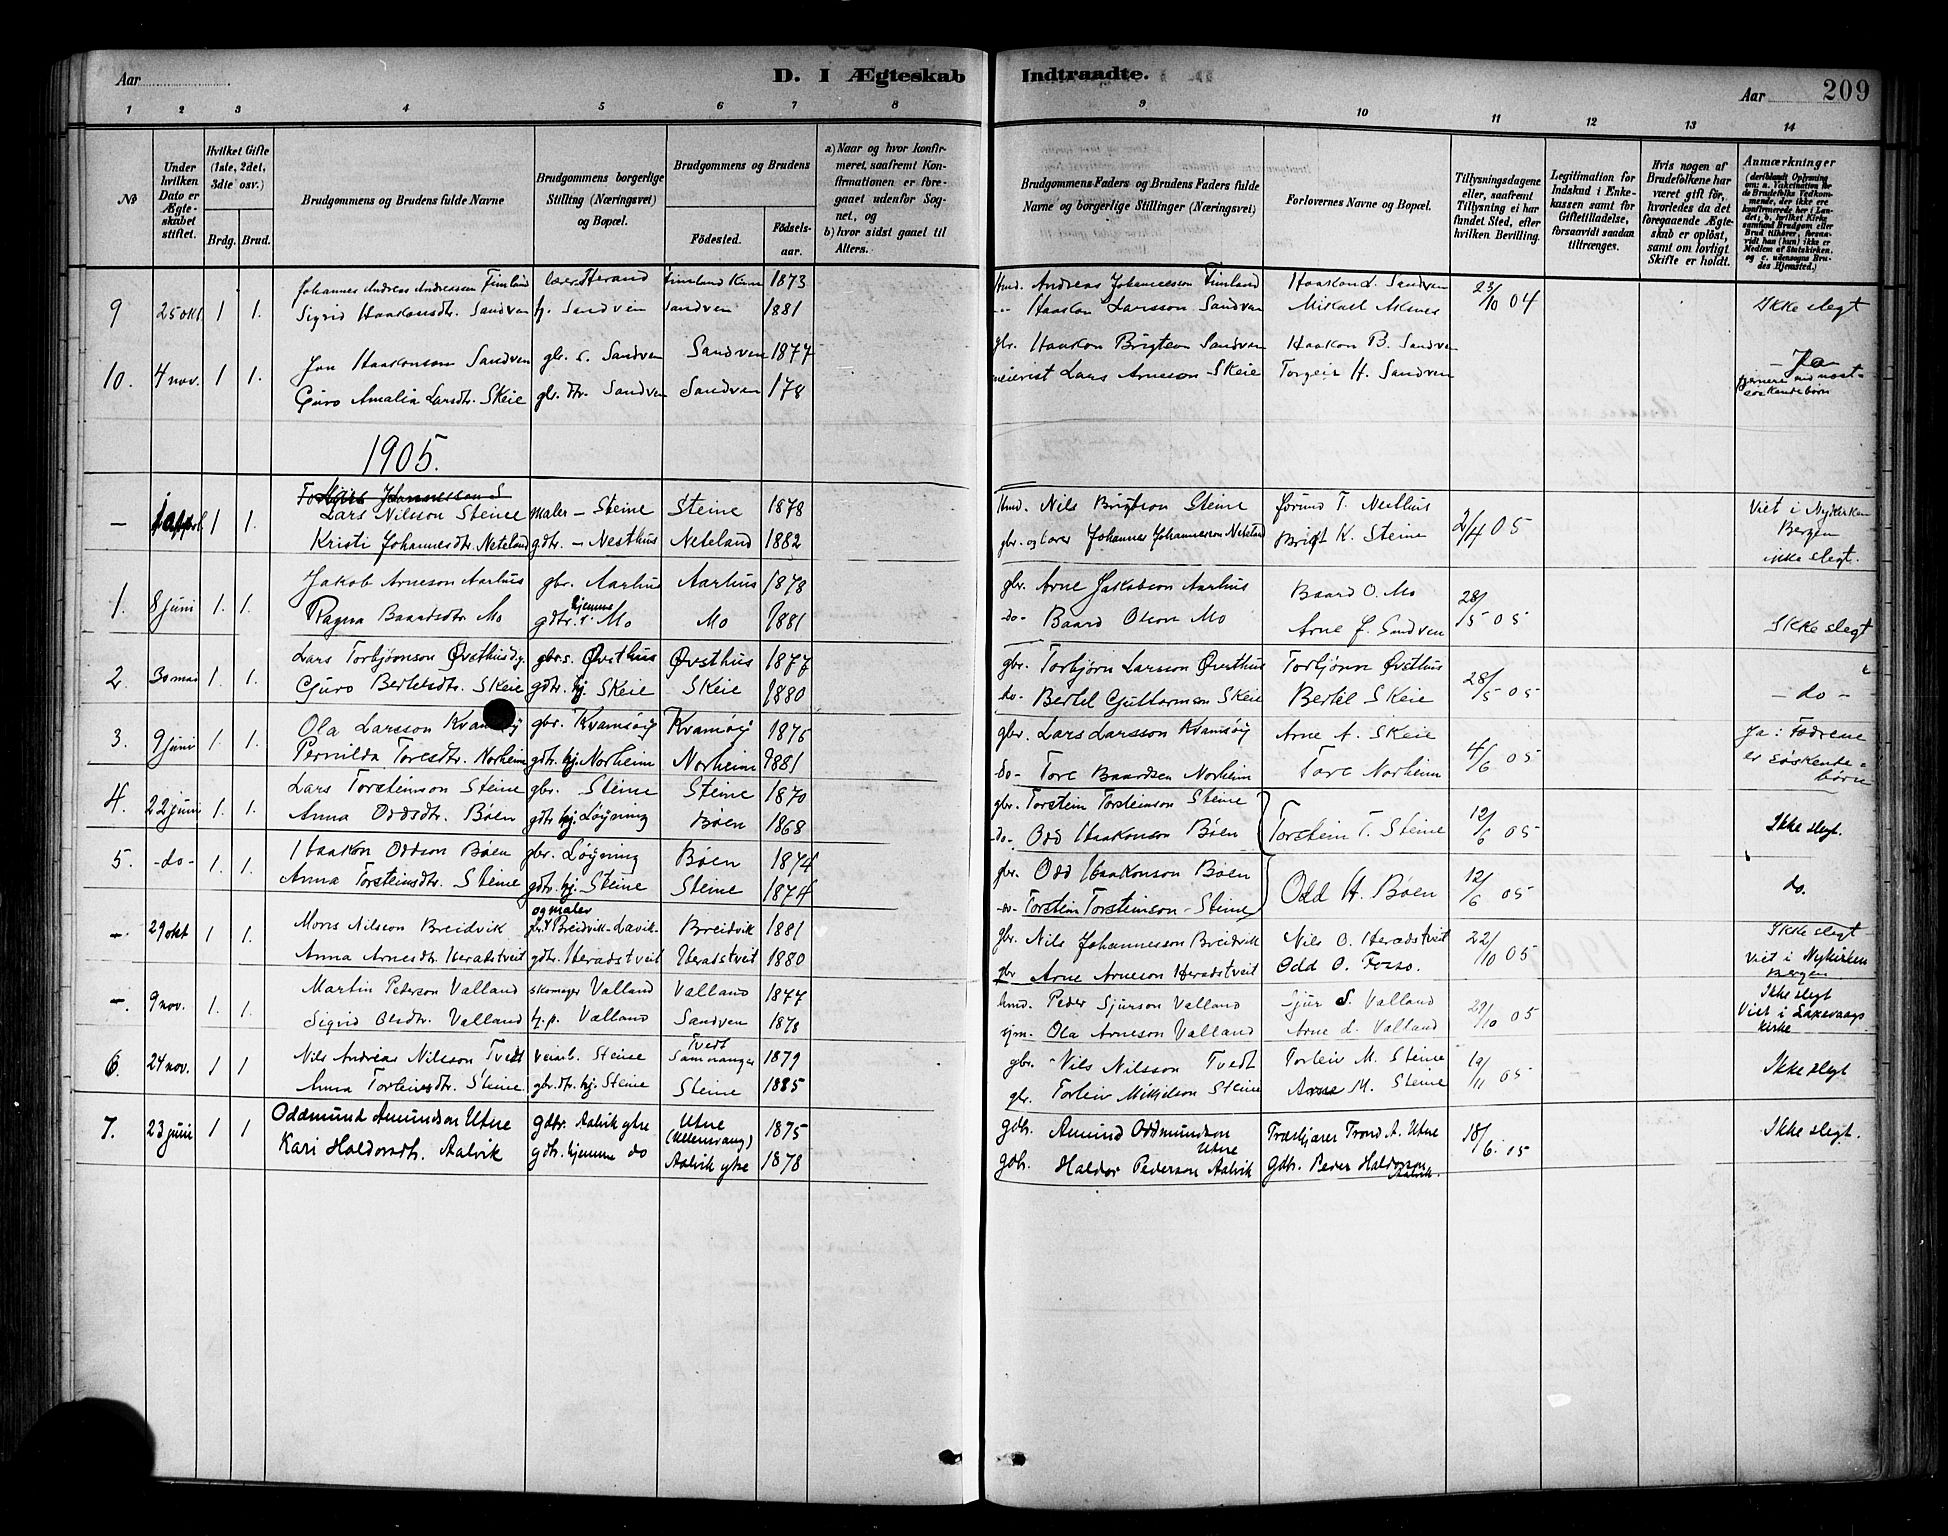 Aar
D. I Ægteskab Indtraadte.
Aar 209
1 2 3 4 5 6 7 8 9 10 11 12 13 14
No
Under hvilken Dato er Ægteskabet stiftet.
Hvilket Gifte (1ste, 2det, 3die osv.)
Brdg. Brud.
Brudgommens og Brudens fulde Navne
Brudgommens borgerlige Stilling (Næringsvei) og Bopæl.
Brudgommens og Brudens
Fødested. Fødselsaar.
a) Naar og hvor konfirmeret, saafremt Konfirmationen er foregaaet udenfor Sognet, og
b) hvor sidst gaaet til Alters.
Brudgommens Faders og Brudens Faders fulde Navne og borgerlige Stillinger (Næringsvei)
Forlovernes Navne og Bopæl.
Tillysningsdagene eller, saafremt Tillysning ei har fundet Sted, efter hvilken Bevilling.
Legitimation for Indskud i Enkekassen samt for Giftetilladelse, forsaavidt saadan tiltrænges.
Hvis nogen af Brudefolkene har været gift før, hvorledes da det foregaaende Ægteskab er opløst, samt om lovligt Skifte er holdt.
Anmærkninger (deriblandt Oplysning om: a. Vakcination for de Brudefolks Vedkommende, der ikke ere konfirmerede her i Landet; b. hvilket Kirkesamfund Brudgom eller Brud tilhører, forsaavidt han (hun) ikke er Medlem af Statskirken, og c. udensogns Brudes Hjemsted.)
9 25 okt 1 1. Johannes Andreas Andreassen Finland Herand 1873 Hmd. Andreas Johannesson Finland Haakon L. Sandven 23/10 04
Sigrid Haakonsdtr. Sandven hj. Sandven Sandven 1881 Haakon Larsson Sandven Mikael Aksnes Ikke slegt
10. 4 nov. 1 1. Jon Haakonson Sandven gbr. s. Sandven Sandven 1877 gbr. Haakon Brigtson Sandven Haakon B. Sandven - Ja -
Guro Amalia Larsdtr. Skeie gbr. dtr. Sandven Sandven 178 meierist Lars Arneson Skeie Torgeir H. Sandven søskendebørn
1905.
- 1 1. Lars Nilsson Steine maler - Steine Steine 1878 Hmd. Nils Brigtson Steine Jørund T. Nesthus 2/4 05 Viet i Nykirken Bergen
Kristi Johannesdtr. Neteland gdtr. - Nesthus Neteland 1882 gbr. og Johannes Johannesson Neteland Brigt K. Steine ikke slegt.
1. 8 juni 1. 1. Jakob Arneson Aarhus gbr. Aarhus Aarhus 1878 gbr. Arne Jakobson Aarhus Baard O. Mo 28/5 05
Ragna Baardsdtr. Mo gdtr. hjemme Mo Mo 1881 -do- Baard Olson Mo Arne J. Sandven Ikke slegt
2. 30 mai 1. 1. Lars Torbjørnson Øvsthus gbr. s. Øvsthus Øvsthus 1877 gbr. Torbjørn Larsson Øvsthus Torbjønn Øvsthus 28/5 05
Guro Bertelsdtr. Skeie gdtr. hj. Skeie Skeie 1880 do- Bertel Guttormson Skeie Bertel Skeie - do -
3. 9 juni 1. 1. Ola Larsson gbr. Kvamsøy Kvamsøy 1875 gbr. Lars Larsson Kvamsøy Arne A. Skeie 4/6 05 Ja: Fædrene
Pernilda Toresdtr. Norheim gdtr. hj. Norheim Norheim 1881 do- Tore Baardsen Norheim Tore Norheim er søskendebørn
4. 22 juni 1. 1. Lars Torsteinson Steine gbr. Steine Steine 1870 gbr. Torstein Torsteinson Steine Torstein T. Steine 12/6 05
Anna Oddsdtr. Bøen gdtr. hj. Løyning Bøen 1868 -do- Odd Haakonson Bøen Ikke slegt.
5. -do- 1. 1. Haakon Oddson Bøen gbr. Løyning Bøen 1874 gbr. Odd Haakonson Bøen Odd H. Bøen 12/6 05
Anna Torsteinsdtr. Steine gdtr. hj. Steine Steine 1874 do- Torstein Torsteinson Steine do.
- 29 okt 1 1. Mons Nilsson Breidvik og maler Breidvik Breidvik 1881 gbr. Nils Johannesson Breidvik Nils O. Heradstveit 22/10 05 Ikke slegt
Anna Arnesdtr. Heradstveit gdtr. Heradstveit Heradstveit 1880 gbr Arne Arneson Heradstveit Odd O. viet i Nykirken Bergen
-. 9 nov. 1. 1. Martin Pederson Valland skomager Valland Valland 1877 hmd. Peder Sjurson Valland Sjur S. Valland 29/10 05 Ikke slegt
Sigrid Olsdtr. Valland Valland Sandven 1878 Ola Arneson Valland Arne L. Valland Viet i Laksevaags kirke
6. 24 nov. 1 1 Nils Andreas Nilsson Tvedt Steine Tvedt Samnanger 1879 gbr. Nils Nilsson Tvedt Torleiv M. Steine 19/11 05 Ikke slegt
Anna Torleivsdtr. Steine gbr. dtr. hj. Steine Steine 1885 gbr. Torleiv Mikkelson Steine Arne M. Steine
7. 23 juni 1 1 Oddmund Amundson Utne gdbr. Aalvik ytre Utne (Ullensvang) 1875 gdbr. Amund Oddmundson Utne Trond A. Utne 18/6. 05 Ikke slegt.
Kari Haldorsdtr. Aalvik gdtr. hjemme do Aalvik ytre 1878 gdbr. Haldor Pederson Aalvik Gdbr. Peder Haldorson Aalvik.